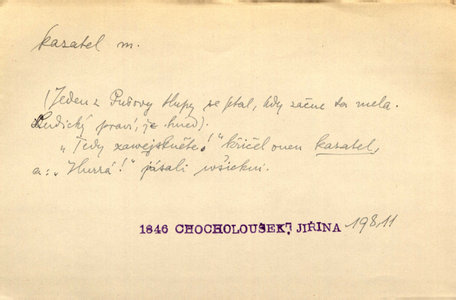 kazatel m.
(Jeden z Pudovy tlupy se ptal, kdy začne ta mela.
Ludický praví, že hned).
"Tedy zawejskněte!" křičel onen kazatel,
a: "Hurrá!" jásali wšickni.
1846 CHOCHOLOUŠEK, JIŘINA 198,11